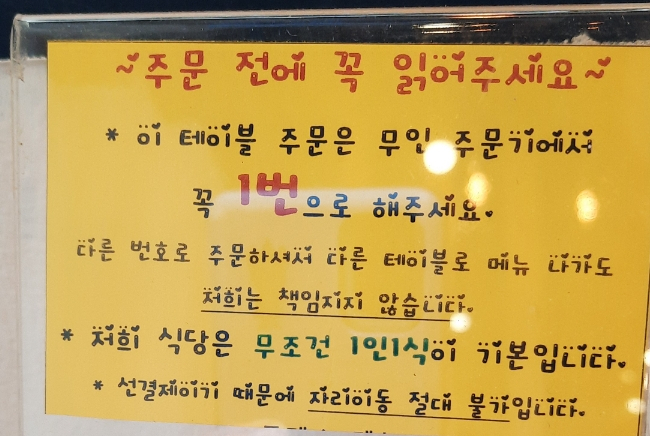 ~주문 전에 꼭 읽어주세요~
* 이 테이블 주문은 무인 주문기에서
꼭 1번으로 해주세요.
다른 번호로 주문하셔서 다른 테이블로 메뉴 나가도
저희는 책임지지 않습니다.
* 저희 식당은 무조건 1인1식이 기본입니다.
* 선결제이기 때문에 자리이동 절대 불가입니다.